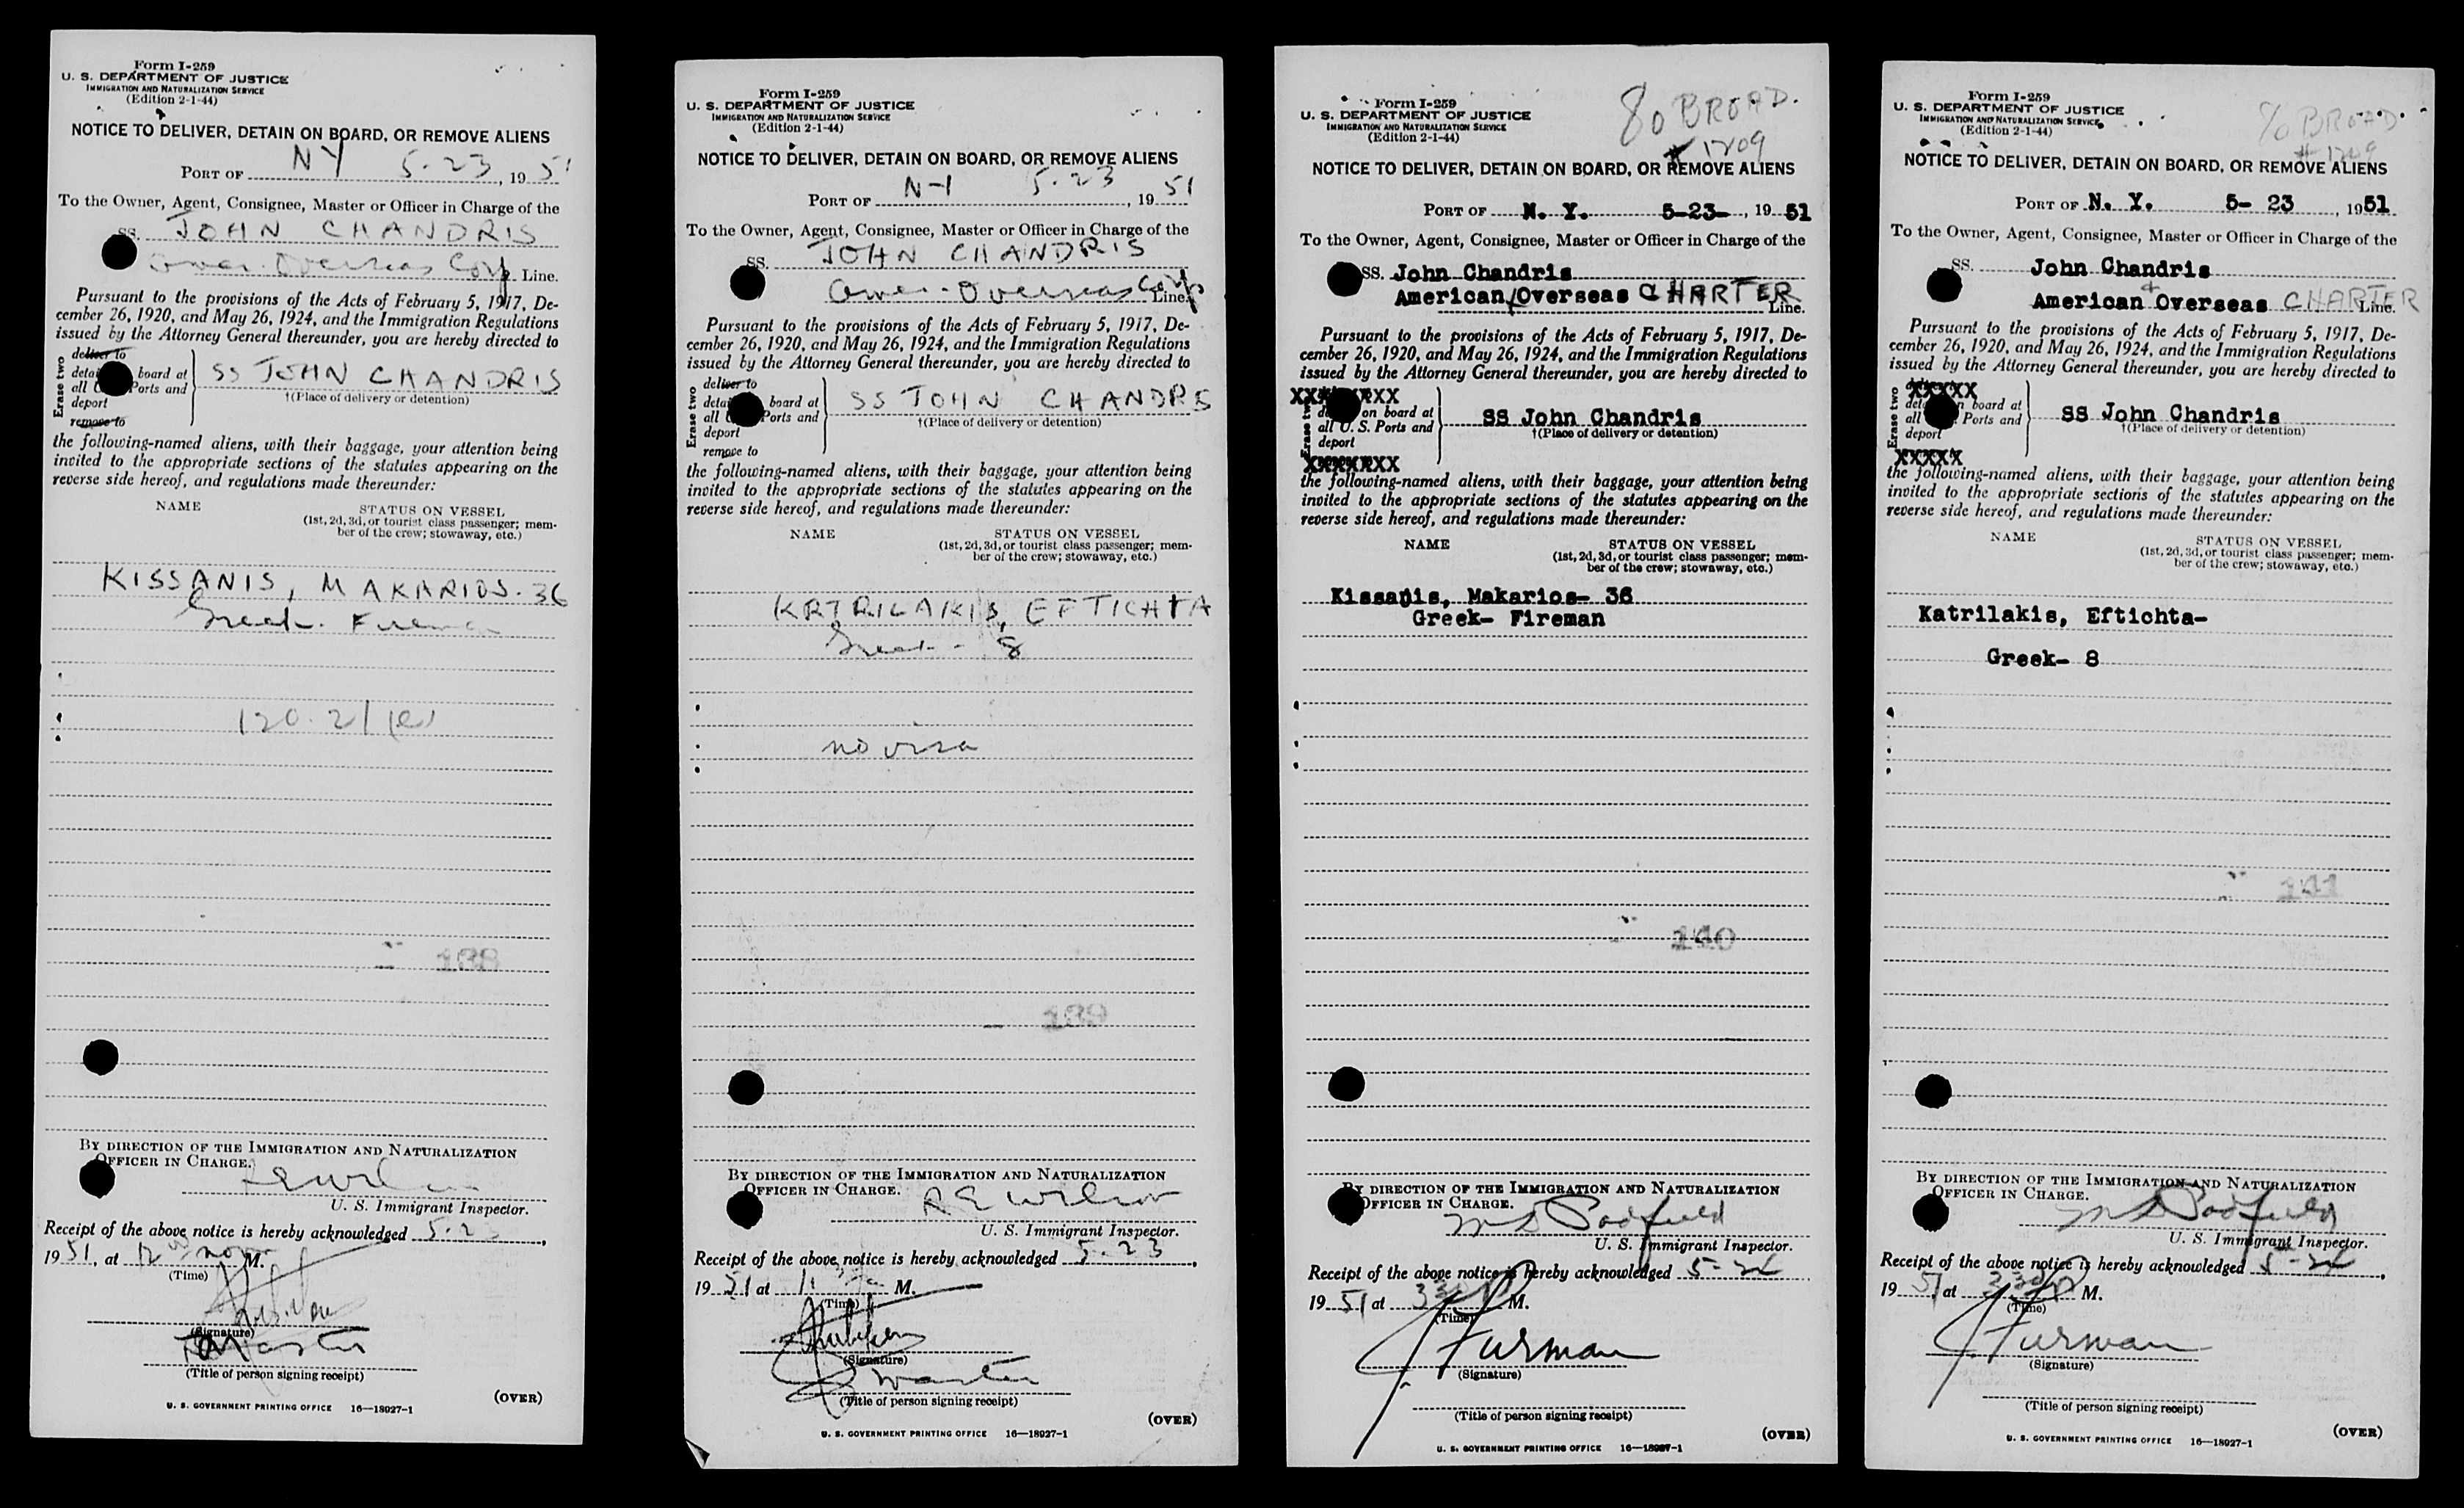 Form I-259
U. S. DEPARTMENT OF JUSTICE
IMMIGRATION AND NATURALIZATION SERVICE
(Edition 2-1-44)
NOTICE TO DELIVER, DETAIN ON BOARD, OR REMOVE ALIENS
PORT OF NY 5-23, 1951
To the Owner, Agent, Consignee, Master or Officer in Charge of the
SS. JOHN CHANDRIS
Overseas Corp. Line.
Pursuant to the provisions of the Acts of February 5, 1917, De-
cember 26, 1920, and May 26, 1924, and the Immigration Regulations
issued by the Attorney General thereunder, you are hereby directed to
Erase two
deliver to
board at
all Ports and
deport
remove to
SS JOHN CHANDRIS
†(Place of delivery or detention)
the following-named aliens, with their baggage, your attention being
invited to the appropriate sections of the statutes appearing on the
reverse side hereof, and regulations made thereunder:
NAME STATUS ON VESSEL
(1st, 2d, 3d, or tourist class passenger; mem-
ber of the crew; stowaway, etc.)
KISSANIS, MAKARIOS. 36
Greek. Fireman
120.21(e)
138
BY DIRECTION OF THE IMMIGRATION AND NATURALIZATION
OFFICER IN CHARGE.
U. S. Immigrant Inspector.
Receipt of the above notice is hereby acknowledged 5-23,
1951, at 12 noon M.
(Time)
(Signature)
Master
(Title of person signing receipt)
(OVER)
U. S. GOVERNMENT PRINTING OFFICE 16—18927-1
Form I-259
U. S. DEPARTMENT OF JUSTICE
IMMIGRATION AND NATURALIZATION SERVICE
(Edition 2-1-44)
NOTICE TO DELIVER, DETAIN ON BOARD, OR REMOVE ALIENS
PORT OF N-Y 5-23, 1951
To the Owner, Agent, Consignee, Master or Officer in Charge of the
SS. JOHN CHANDRIS
Amer. Overseas Corp Line.
Pursuant to the provisions of the Acts of February 5, 1917, De-
cember 26, 1920, and May 26, 1924, and the Immigration Regulations
issued by the Attorney General thereunder, you are hereby directed to
Erase two
deliver to
board at
all Ports and
deport
remove to
SS JOHN CHANDRS
†(Place of delivery or detention)
the following-named aliens, with their baggage, your attention being
invited to the appropriate sections of the statutes appearing on the
reverse side hereof, and regulations made thereunder:
NAME STATUS ON VESSEL
(1st, 2d, 3d, or tourist class passenger; mem-
ber of the crew; stowaway, etc.)
KATRILAKIS, EFTICHTA
Greek - 8
no visa
139
BY DIRECTION OF THE IMMIGRATION AND NATURALIZATION
OFFICER IN CHARGE. R E Wilson
U. S. Immigrant Inspector.
Receipt of the above notice is hereby acknowledged 5-23,
1951 at M.
(Time)
(Signature)
Master
(Title of person signing receipt)
(OVER)
U. S. GOVERNMENT PRINTING OFFICE 16—18927-1
80 BROAD.
# 1209
Form I-259
U. S. DEPARTMENT OF JUSTICE
IMMIGRATION AND NATURALIZATION SERVICE
(Edition 2-1-44)
NOTICE TO DELIVER, DETAIN ON BOARD, OR REMOVE ALIENS
PORT OF N. Y. 5-23-, 1951
To the Owner, Agent, Consignee, Master or Officer in Charge of the
SS. John Chandris
American/Overseas CHARTER
Line.
Pursuant to the provisions of the Acts of February 5, 1917, De-
cember 26, 1920, and May 26, 1924, and the Immigration Regulations
issued by the Attorney General thereunder, you are hereby directed to
on board at
all U. S. Ports and
deport
XXXXXXX
SS John Chandris
†(Place of delivery or detention)
the following-named aliens, with their baggage, your attention being
invited to the appropriate sections of the statutes appearing on the
reverse side hereof, and regulations made thereunder:
NAME STATUS ON VESSEL
(1st, 2d, 3d, or tourist class passenger; mem-
ber of the crew; stowaway, etc.)
Kissanis, Makarios- 36
Greek- Fireman
140
BY DIRECTION OF THE IMMIGRATION AND NATURALIZATION
OFFICER IN CHARGE.
Padfield
U. S. Immigrant Inspector.
Receipt of the above notice is hereby acknowledged 5-24,
1951 at 330 P M.
(Time)
J Furman
(Signature)
(Title of person signing receipt)
(OVER)
U. S. GOVERNMENT PRINTING OFFICE 16—18927-1
80 BROAD.
# 1209
Form I-259
U. S. DEPARTMENT OF JUSTICE
IMMIGRATION AND NATURALIZATION SERVICE
(Edition 2-1-44)
NOTICE TO DELIVER, DETAIN ON BOARD, OR REMOVE ALIENS
PORT OF N. Y. 5- 23, 1951
To the Owner, Agent, Consignee, Master or Officer in Charge of the
SS. John Chandris
American + Overseas CHARTER
Line.
Pursuant to the provisions of the Acts of February 5, 1917, De-
cember 26, 1920, and May 26, 1924, and the Immigration Regulations
issued by the Attorney General thereunder, you are hereby directed to
Erase two
XXXXX
board at
all Ports and
deport
XXXXX
SS John Chandris
†(Place of delivery or detention)
the following-named aliens, with their baggage, your attention being
invited to the appropriate sections of the statutes appearing on the
reverse side hereof, and regulations made thereunder:
NAME STATUS ON VESSEL
(1st, 2d, 3d, or tourist class passenger; mem-
ber of the crew; stowaway, etc.)
Katrilakis, Eftichta-
Greek- 8
141
BY DIRECTION OF THE IMMIGRATION AND NATURALIZATION
OFFICER IN CHARGE.
Padfield
U. S. Immigrant Inspector.
Receipt of the above notice is hereby acknowledged 5-24,
1951 at 330 P M.
(Time)
J Furman
(Signature)
(Title of person signing receipt)
(OVER)
U. S. GOVERNMENT PRINTING OFFICE 16—18927-1